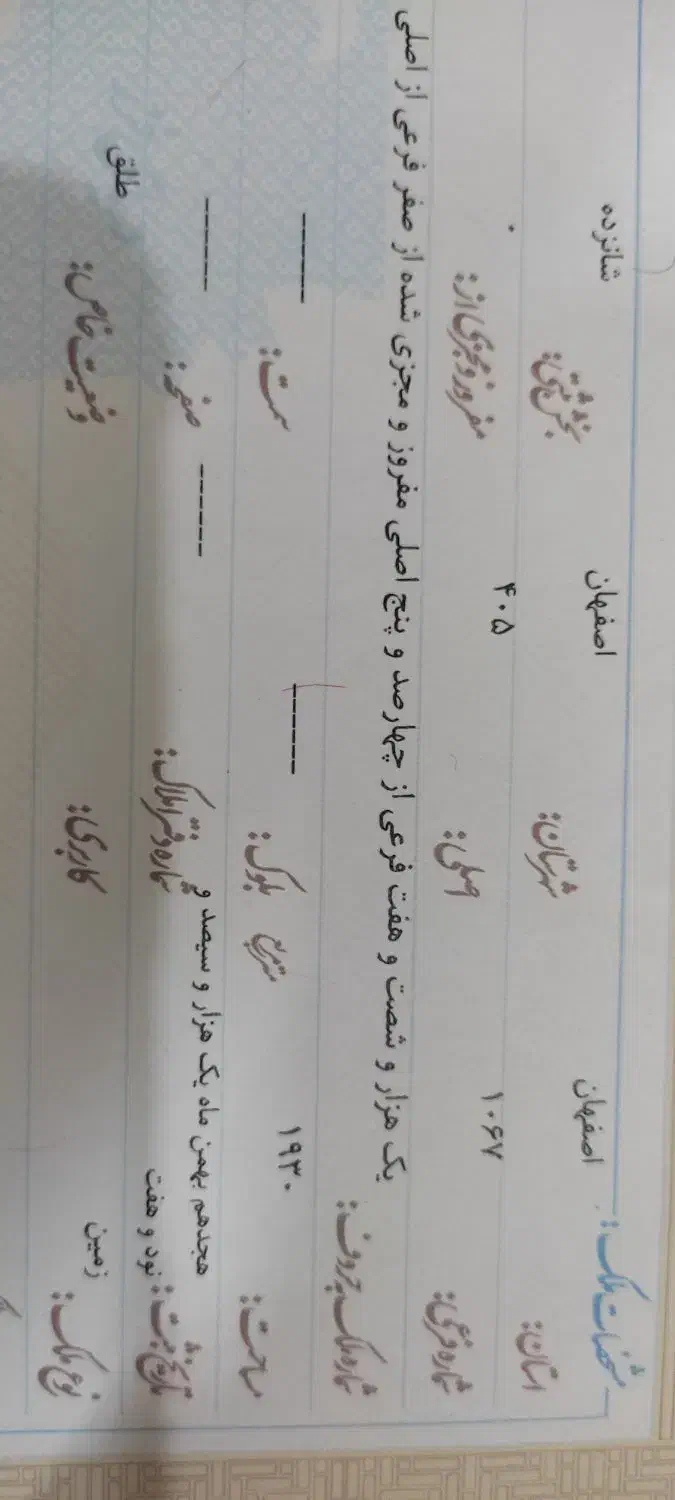 مشخصات ملک:
استان: اصفهان شهرستان: اصفهان بخش ثبتی: شانزده
شماره فرعی: ۱۰۶۷ اصلی: ۴۰۵ مفروز و مجزی از: ۰
شماره ملک به حروف: یک هزار و شصت و هفت فرعی از چهارصد و پنج اصلی مفروز و مجزی شده از صفر فرعی از اصلی
مساحت: ۱۹۳۰ مترمربع بلوک: ------ سمت: ------
تاریخ ثبت: هجدهم بهمن ماه یک هزار و سیصد و نود و هفت شماره دفتر املاک: ------ صفحه: ------
نوع ملک: زمین کاربری: وضعیت خاص: طلق